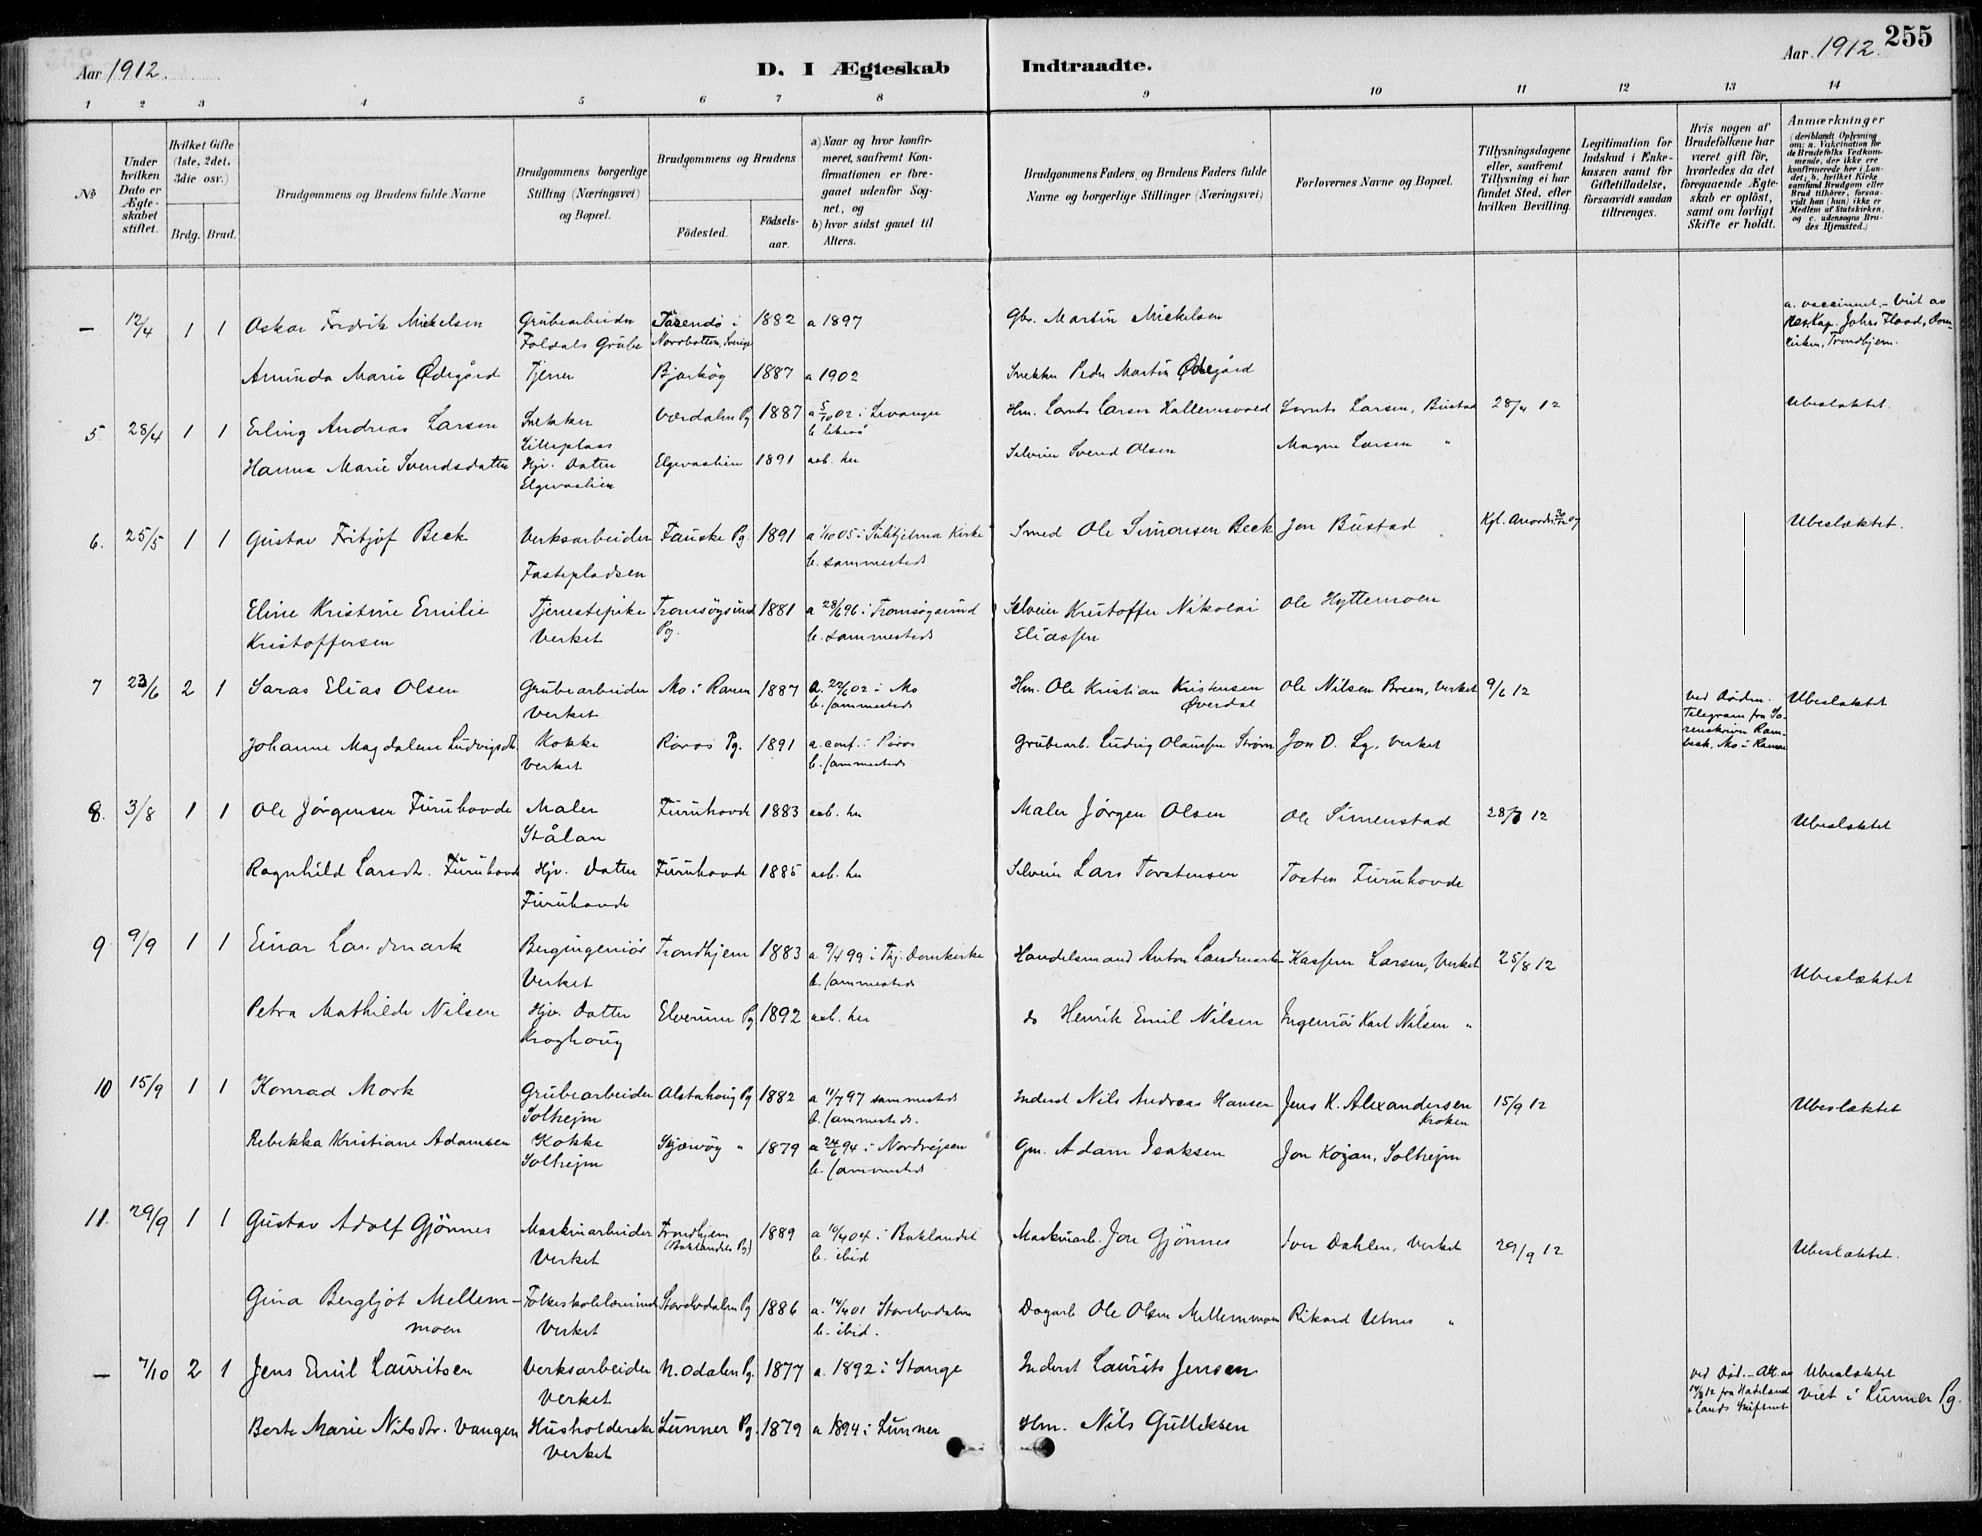 Aar 1912.
D. I Ægteskab Indtraadte.
Aar 1912. 255
1 2 3 4 5 6 7 8 9 10 11 12 13 14
No
Under hvilken Dato er Ægteskabet stiftet.
Hvilket Gifte (1ste, 2det, 3die osv.)
Brdg. Brud.
Brudgommens og Brudens fulde Navne
Brudgommens borgerlige Stilling (Næringsvei) og Bopæl.
Brudgommens og Brudens
Födested. Födselsaar.
a) Naar og hvor konfirmeret, saafremt Konfirmationen er foregaaet udenför Sognet, og
b) hvor sidst gaaet til Alters.
Brudgommens Faders og Brudens Faders fulde Navne og borgerlige Stillinger (Næringsvei)
Forlovernes Navne og Bopæl.
Tillysningsdagene eller, saafremt Tillysning ei har fundet Sted, efter hvilken Bevilling.
Legitimation for Indskud i Enkekassen samt for Giftetilladelse, forsaavidt saadan tiltrænges.
Hvis nogen af Brudefolkene har været gift för, hvorledes da det foregaaende Ægteskab er oplöst, samt om lovligt Skifte er holdt.
Anmærkninger (deriblandt Oplysning om: a. Vakcination for de Brudefolks Vedkommende, der ikke ere konfirmerede her i Landet; b. hvilket Kirkesamfund Brudgom eller Brud tilhörer, forsaavidt han (hun) ikke er Medlem af Statskirken, og c. udensogns Brudes Hjemsted.)
— 12/4 1 1 Oskar Fredrik Mickelsen Grubearbeider 1882 a 1897 Gbr. Martin Mickelsen a. vaccinert. - Viet av
Foldals Grube Norrbotten, Sverige Res. Kap. Johs Flood, Dom-
kirken, Trondhjem.
Aminda Marie Ødegård Tjener Bjarköy 1887 a 1902 Snekker Peder Martin Ødegård
5. 28/4 1 1 Erling Andreas Larsen Snekker Værdalen Pg 1887 a 5/10 02 i Levanger Hm. Larsen Larnts Larsen, Bustad 28/4 12 Ubeslæktet.
Lilleplass
Hanna Marie Svendsdatter Hjv. Datter 1891 adb. her Selveier Svend Olsen Magne Larsen "
6. 25/5 1 1 Gustav Fritjof Beck Verksarbeider Fauske Pg. 1891 a 1/10 05 i Sulitjelma Kirke Smed Ole Simonsen Beck Jon Bustad Kgl. Ubeslæktet.
Fastepladsen b. sammesteds
Eline Kristine Emilie Tjenestepike Tromsöysund 1881 a 28/6 96 i Tromsöysund Selveier Kristoffer Nikolai Ole Hyttemoen
Kristoffersen Verket Pg. b. sammesteds Eliassen
7 23/6 2 1 Saras Elias Olsen Grubearbeider Mo i Ranen 1887 a. 22/6 02 i Mo Hm. Ole Kristian Kristensen Ole Nilsen Breen, Verket 9/6 12 ved Døden. Ubeslæktet
Verket b. sammesteds Øverdal Telegram fra So-
renskriver Ram-
beck, Mo i Ranen
Johanne Magdalene Ludvigsdtr. Kokke Röros Pg. 1891 a. conf. i Röros Grubearb. Ludvig Olaussen Ström Jon O. Ly, Verket
Verket b. sammesteds
8. 3/8 1 1 Ole Jörgensen Furuhovde Maler Furuhovde 1883 adb. her Maler Jörgen Olsen Ole Simenstad 28/7 12 Ubeslæktet
Stålan
Ragnhild Larsdtr. Furuhovde Hjv. Datter Furuhovde 1885 adb. her Selveier Lars Torstensen Tosten Furuhovde
Furuhovde
9. 9/9 1 1 Einar Landmark Bergingeniör Trondhjem 1883 a. 9/4 99 i Thj. Domkirke Handelsmand Anton Landmark Kassper Larsen, Verket 25/8 12 Ubeslæktet
Verket b. sammesteds
Petra Mathilde Nilsen Hjv. Datter Elverum Pg 1892 adb. her do Henrik Emil Nilsen Ingeniör Karl Nilsen "
Kroghoug
10 15/9 1 1 Konrad Mork Grubearbeider Alstahoug Pg 1882 a 11/7 97 sammesteds Inderst Nils Andreas Hansen Jens K. Alexandersen 15/9 12 Ubeslæktet
Solheim b. sammesteds. Kroken
Rebekka Kristiane Adamsen Kokke Skjærvöy " 1879 a 24/6 94 i Nordreisen Gm. Adam Isaksen Jon Kojan, Solheim
Solheim b. sammesteds
11. 29/9 1 1 Gustav Adolf Gjönnes Maskinarbeider Trondhjem 1889 a 10/4 04 i Baklandet Maskinarb. Jon Gjönnes Iver Dahlen, Verket 29/9 12 Ubeslæktet.
Verket (Baklandets Pg) b. ibid
Gina Bergljot Mellem- Folkeskolelærerinde Storelvdalen Pg 1886 a. 14/4 01 Storelvdalen Dagarb Ole Olsen Mellemmoen Rikard Utnes "
moen Verket b. ibid.
— 7/10 2 1 Jens Emil Lauritsen Verksarbeider N. Odalen Pg. 1877 a. 1892 i Stange Inderst Laurits Jensen ved Död. - Att. av Ubeslæktet
Verket 14/8 12 fra Hadeland viet i Lunner Pg.
& Lands Skifteret
Berte Marie Nilsdtr. Vangen Husholderske Lunner Pg. 1879 a 1894 i Lunner Hm. Nils Gulliksen
Verket